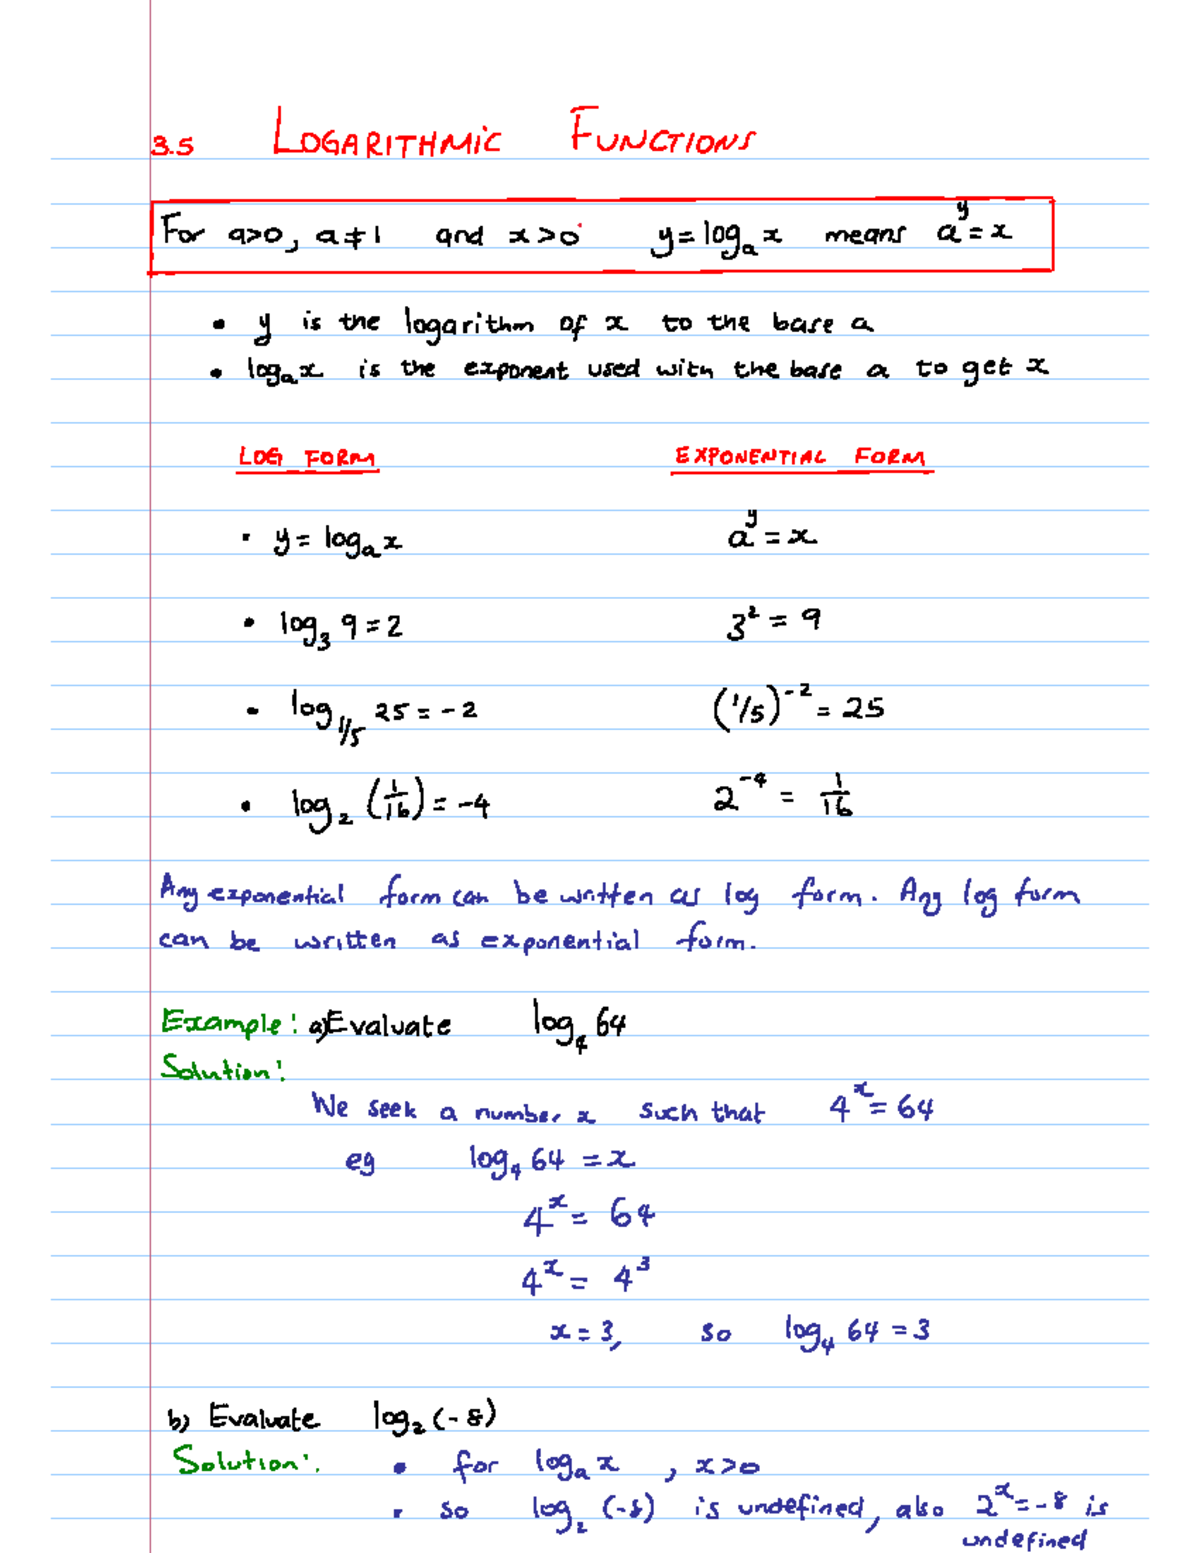 3.5 LOGARITHMIC FUNCTIONS
For a>0, a≠1 and x>0 y=logₐx means aʸ=x
• y is the logarithm of x to the base a
• logₐx is the exponent used with the base a to get x
LOG FORM EXPONENTIAL FORM
• y = logₐx aʸ = x
• log₃ 9 = 2 3² = 9
• log₁/₅ 25 = -2 (1/5)⁻² = 25
• log₂ (1/16) = -4 2⁻⁴ = 1/16
Any exponential form can be written as log form. Any log form
can be written as exponential form.
Example: a) Evaluate log₄ 64
Solution:
We seek a number x such that 4ˣ = 64
eg log₄ 64 = x
4ˣ = 64
4ˣ = 4³
x = 3, so log₄ 64 = 3
b) Evaluate log₂ (-8)
Solution: • for logₐ x , x>0
• so log₂ (-8) is undefined, also 2ˣ = -8 is
undefined